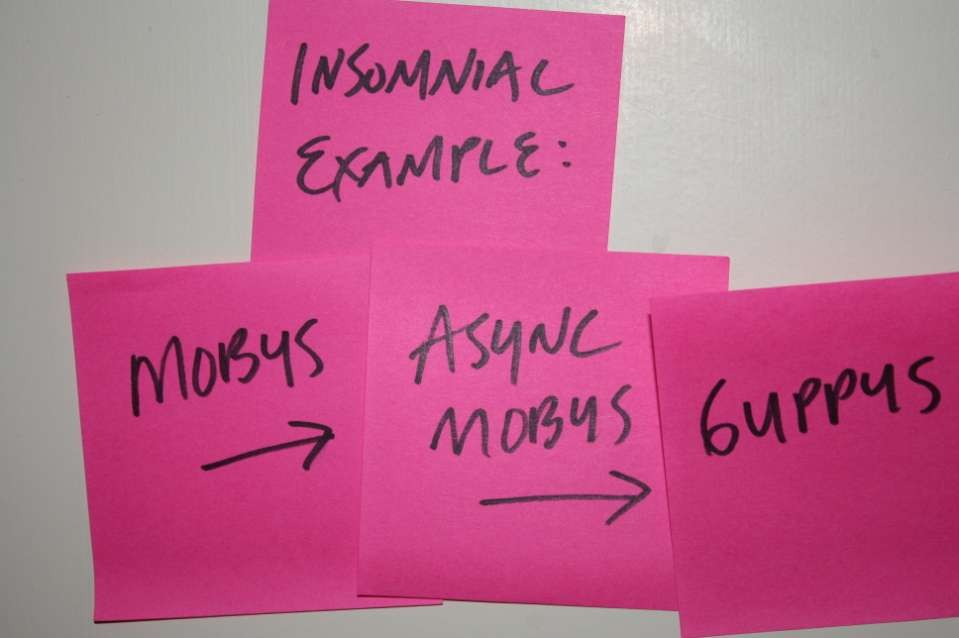 INSOMNIAC
EXAMPLE:
MOBYS
→
ASYNC
MOBYS
→
GUPPYS